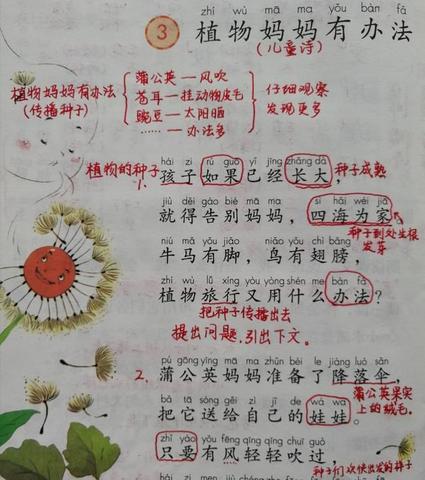 zhí wù mā ma yǒu bàn fǎ
3 植物妈妈有办法
(儿童诗)
植物妈妈有办法
(传播种子)
蒲公英—风吹
苍耳—挂动物皮毛
豌豆—太阳晒
……—办法多
仔细观察
发现更多
hái zi rú guǒ yǐ jīng zhǎng dà
植物的种子
1、孩子如果已经长大,
种子成熟
jiù děi gào bié mā ma sì hǎi wéi jiā
就得告别妈妈,四海为家
种子到处生根
发芽
niú mǎ yǒu jiǎo niǎo yǒu chì bǎng
牛马有脚,鸟有翅膀,
zhí wù lǚ xíng yòu yòng shén me bàn fǎ
植物旅行又用什么办法?
把种子传播出去
提出问题,引出下文。
pú gōng yīng mā ma zhǔn bèi le jiàng luò sǎn
2、蒲公英妈妈准备了降落伞,
蒲公英果实
上的绒毛。
bǎ tā sòng gěi zì jǐ de wá wa
把它送给自己的娃娃。
zhǐ yào yǒu fēng qīng qīng chuī guò
只要有风轻轻吹过,
种子们欢快出发的样子